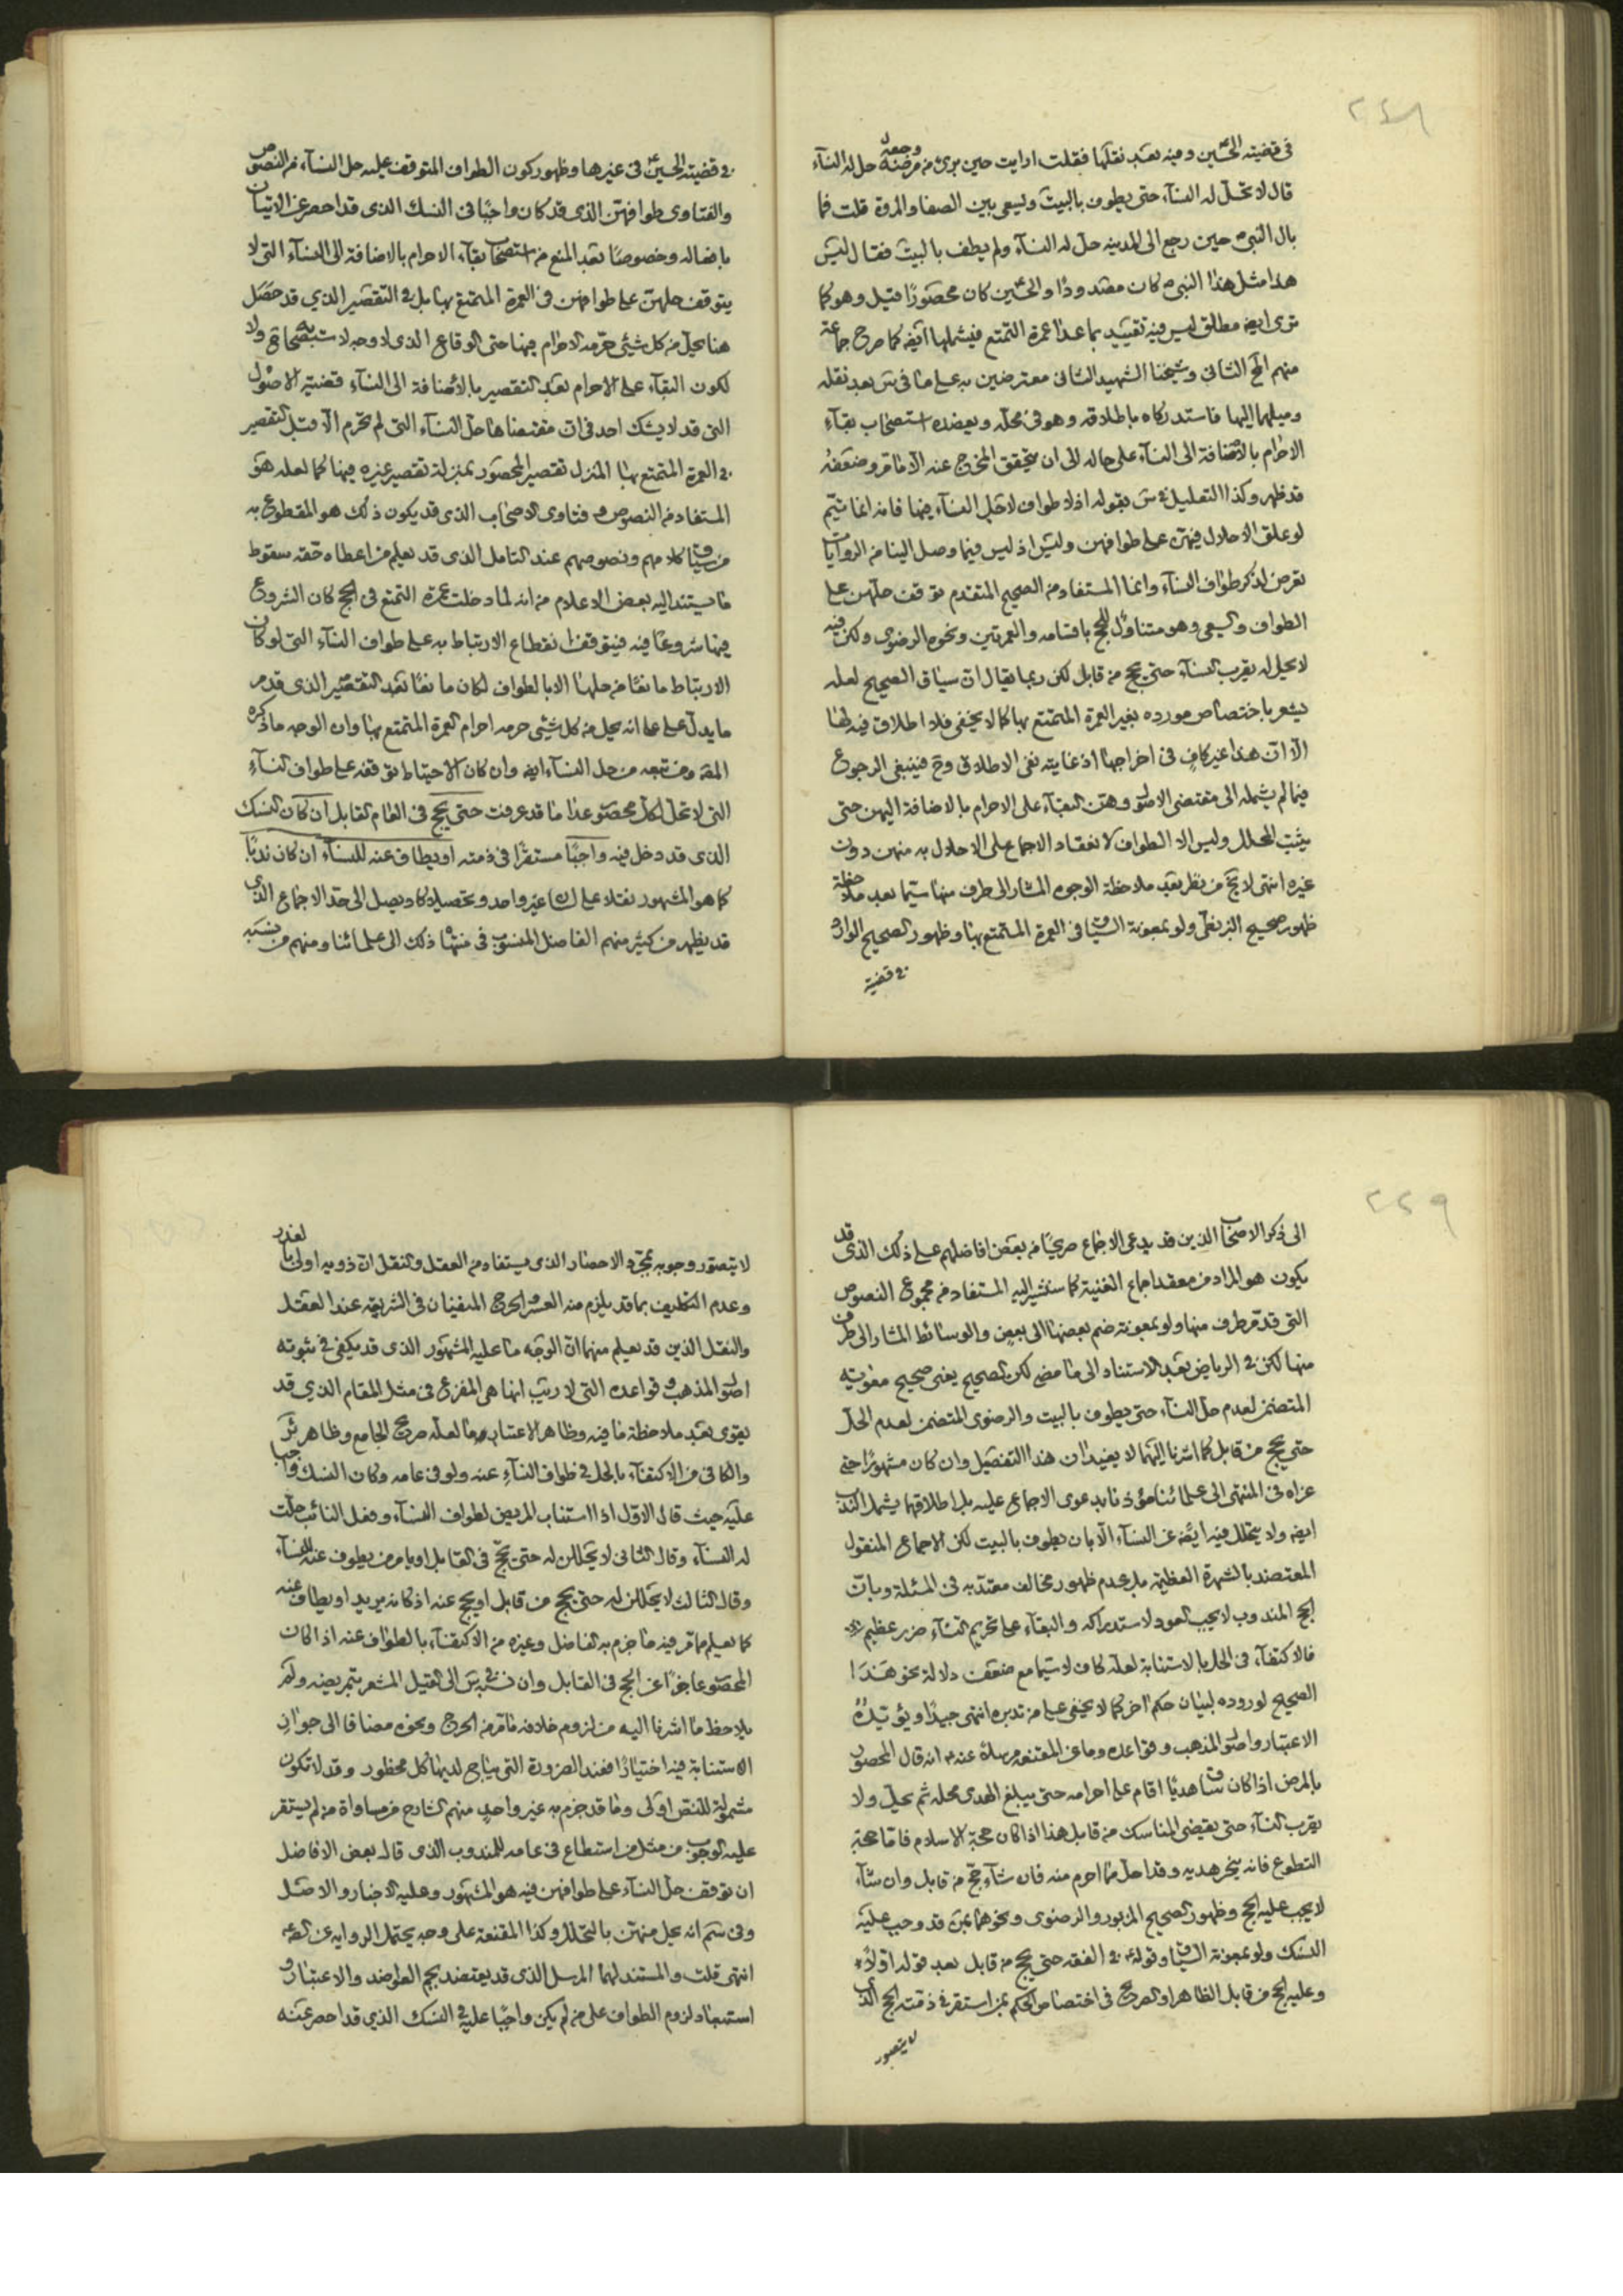 ٢٤٨
في قضية الحسين وفيه بعد نقلها فقلت ارايت حين برئ من مرضه وجعه حل له النسآء
قال لا تحل له النسآء حتى يطوف بالبيت ويسعى بين الصفا والمروة قلت فما
بال النبي ص حين رجع الى المدينة حل له النسآء ولم يطف بالبيت فقال ليس
هذا مثل هذا النبي ص كان مصدودًا والحسين كان محصورًا قيل وهو كما
ترى ايضا مطلق ليس فيه تقييد بما عدا عمرة التمتع فيشملها ايضا كما صرح جماعة
منهم المح الثاني وشيخنا الشهيد الثاني معترضين به على ما في س بعد نقله
وميلهما اليها فاستدركاه باطلاقه وهو في محله ويعضده استصحاب بقآء
الاحرام بالاضافة الى النسآء على حاله الى ان يتحقق المخرج عنه الا ما مر وضعفه
قد ظهر وكذا التعليل في س بقوله اذ لا طواف لاجل النسآء فيها فانه انما يتم
لو علق الاحلال فيهن على طوافهن وليس اذ ليس فيما وصل الينا من الروايات
تعرض لذكر طواف النسآء وانما المستفاد من الصحيح المتقدم توقف حلهن على
الطواف والسعي وهو متناول للحج باقسامه والعمرتين ونحوه الرضوي ولكن فيه
لا يحل له يقرب النسآء حتى يحج من قابل لكن ربما يقال ان سياق الصحيح لعله
يشعر باختصاص مورده بغير العمرة المتمتع بها كما لا يخفى فلا اطلاق فيه لها
الا ان هذا غير كاف في اخراجها اذ غايته نفي الاطلاق وح فينبغي الرجوع
فيما لم يشمله الى مقتضى الاصل وهو البقآء على الاحرام بالاضافة اليهن حتى
يثبت المحلل وليس الا الطواف لانعقاد الاجماع على الاحلال به منهن دون
غيره انتهى لا يخ من نظر بعد ملاحظة الوجوه المشار الى طرف منها سيما بعد ملاحظة
ظهور صحيح البزنطي ولو بمعونة السياق في العمرة المتمتع بها وظهور الصحيح الوارد
في قضية
في قضية الحسين في غيرها وظهور كون الطواف المتوقف عليه حل النسآء من النصوص
والفتاوى طوافهن الذي قد كان واجبًا في النسك الذي قد احصر عن الاتيان
بافعاله وخصوصًا بعد المنع من استصحاب بقآء الاحرام بالاضافة الى النسآء التي لا
يتوقف حلهن على طوافهن في العمرة المتمتع بها بل في التقصير الذي قد حصل
هنا يحل من كل شئ حرمه الاحرام فيها حتى الوقاع الذي لا وجه لاستصحابه ولا
لكون البقآء على الاحرام بعد التقصير بالاضافة الى النسآء قضية الاصول
التي قد لا يشك احد في ان مقتضاها حل النسآء التي لم تحرم الا قبل التقصير
في العمرة المتمتع بها المنزل تقصير المحصور بمنزلة تقصير غيره فيها كما لعله هو
المستفاد من النصوص و فتاوى الاصحاب الذي قد يكون ذلك هو المقطوع به
من سياق كلامهم ونصوصهم عند التامل الذي قد يعلم من اعطاه حقه سقوط
ما يستند اليه بعض الاعلام من انه لما دخلت عمرة التمتع في الحج كان الشروع
فيها شروعًا فيه فيتوقف انقطاع الارتباط به على طواف النسآء التي لو كان
الارتباط مانعًا من حلها الا بالطواف لكان مانعًا بعد التقصير الذي قد مر
ما يدل على على انه يحل من كل شئ حرمه احرام العمرة المتمتع بها وان الوجه ما ذكره
المقه ومن تبعه من حل النسآء ايضا وان كان الاحتياط توقفه على طواف النسآء
التي لا تحل لكل محصور عدا ما قد عرفت حتى يحج في العام القابل ان كان النسك
الذي قد دخل فيه واجبًا مستقرًا في ذمته او يطاف عنه للنسآء ان كان ندبًا
كما هو المشهور نقلا على لسان غير واحد وتحصيلا كاد يصل الى حد الاجماع الذي
قد يظهر من كثير منهم الفاضل المنسوب في منتهاه ذلك الى علمائنا ومنهم من نسبه
٢٤٩
الى ذكر الاصحاب الذين قد يدعى الاجماع صريحًا من بعض افاضلهم على ذلك الذي قد
يكون هو المراد من معقد اجماع الغنية كما سنشير اليه المستفاد من مجموع النصوص
التي قد مر طرف منها ولو بمعونة ضم بعضها الى بعض والوسائط المشار الى طرف
منها لكن في الرياض بعد الاستناد الى ما مضى لكن الصحيح يعني صحيح معوية
المتضمن لعدم حل النسآء حتى يطوف بالبيت والرضوي المتضمن لعدم الحل
حتى يحج من قابل كما اشرنا اليهما لا يفيدان هذا التفصيل وان كان مشهورًا حتى
عزاه في المنتهى الى علمائنا مؤذنا بدعوى الاجماع عليه بل اطلاقهما يشمل الندب
ايضا ولا يتحلل فيه ايضا عن النسآء الا بان يطوف بالبيت لكن الاجماع المنقول
المعتضد بالشهرة العظيمة بل عدم ظهور مخالف معتد به في المسئلة وبان
الحج المندوب لا يجب العود لاستدراكه والبقآء على تحريم النسآء ضرر عظيم
فالاكتفآء في الحل بالاستنابة لعله كاف لا سيما مع ضعف دلالة نحو هذا
الصحيح لوروده لبيان حكم اخر كما لا يخفى على من تدبره انتهى جيدًا ويؤيده
الاعتبار واصول المذهب وقواعده وما عن المقنعه مرسلا عنه ع انه قال المحصور
بالمرض اذا كان ساق هديًا اقام على احرامه حتى يبلغ الهدي محله ثم يحل ولا
يقرب النسآء حتى يقضي المناسك من قابل هذا اذا كان حجة الاسلام فاما حجة
التطوع فانه ينحر هديه وقد احل مما احرم منه فان شآء حج من قابل وان شآء
لا يجب عليه الحج وظهور الصحيح المزبور والرضوي ونحوهما بمن قد وجب عليه
النسك ولو بمعونة السياق وقوله في الفقه حتى يحج من قابل بعد قوله اولا
وعليه الحج من قابل الظاهر او الصريح في اختصاص الحكم بمن استقر في ذمته الحج الذي
لا يتصور
لا يتصور وجوبه بمجرد الاحصار الذي يستفاد من العقل والنقل ان ذويه اولى بالعذر
وعدم التكليف بما قد يلزم منه العسر والحرج المنفيان في الشريعة عند العقل
والنقل الذين قد يعلم منهما ان الوجه ما عليه المشهور الذي قد يكفي في ثبوته
اصول المذهب و قواعده التي لا ريب انها هي المفزع في مثل المقام الذي قد
يقوى بعد ملاحظة ما فيه وظاهر الاعتبار ما لعله صريح الجامع وظاهر ئر
والكافي من الاكتفآء بالحل في طواف النسآء عنه ولو في عامه وكان النسك واجبا
عليه حيث قال الاول اذا استناب المريض لطواف النسآء وفعل النائب حلت
له النسآء وقال الثاني لا يحللن له حتى يحج في القابل او يامر من يطوف عنه للنسآء
وقال الثالث لا يحللن له حتى يحج من قابل او يحج عنه اذ كانه يريد او يطاف عنه
كما يعلم مما مر فيه ما جزم به الفاضل وغيره من الاكتفآء بالطواف عنه اذا كان
المحصور عاجزًا عن الحج في القابل وان نسبه س الى القيل المشعر بتمريضه ولم
يلاحظ ما اشرنا اليه من لزوم خلافه ما مر من الحرج ونحوه مضافا الى جواز
الاستنابة فيه اختيارًا فعند الضرورة التي يباح لديها كل محظور وقد لا تكون
مشمولة للنص اولى وما قد جزم به غير واحد منهم الشارح من مساواة من لم يستقر
عليه الوجوب من مثل من استطاع في عامه للمندوب الذي قال بعض الافاضل
ان توقف حل النسآء على طوافهن فيه هو المشهور وعليه الاخبار والاصل
وفي سم انه يحل منهن بالتحلل وكذا المقنعة على وجه يحتمل الرواية عن الصم
انتهى قلت والمستند لهما المرسل الذي قد يعتضد بجم العواضد والاعتبار و
استبعاد لزوم الطواف على من لم يكن واجبًا عليه في النسك الذي قد احصر عنه